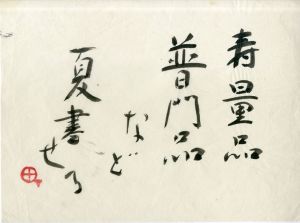 寿量品
普門品
など
夏書せる